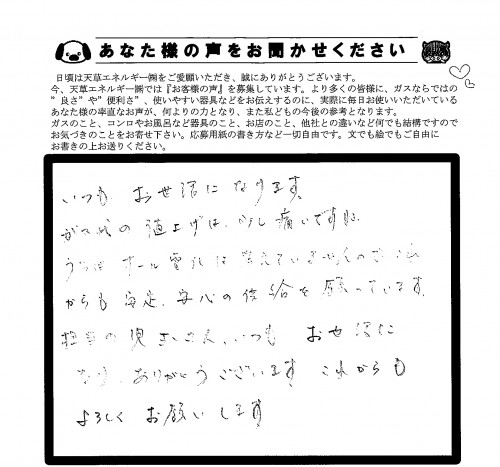 あなた様の声をお聞かせください
日頃は天草エネルギー㈱をご愛願いただき、誠にありがとうございます。
今、天草エネルギー㈱では『お客様の声』を募集しています。より多くの皆様に、ガスならではの
”良さ”や”便利さ”、使いやすい器具などをお伝えするのに、実際に毎日お使いいただいている
あなた様の率直なお声が、何よりの力となり、また私どもの今後の参考となります。
ガスのこと、コンロやお風呂など器具のこと、お店のこと、他社との違いなど何でも結構ですので
お気づきのことをお寄せ下さい。応募用紙の書き方など一切自由です。文でも絵でもご自由に
お書きの上お送りください。
いつも お世話になります。
ガス代の値上げは、少し痛いですね。
うちは オール電化は考えていませんので
からも 安定、安心の供給を願っています。
担当の さん、いつも お世話に
なり、ありがとうございます これからも
よろしく お願いします